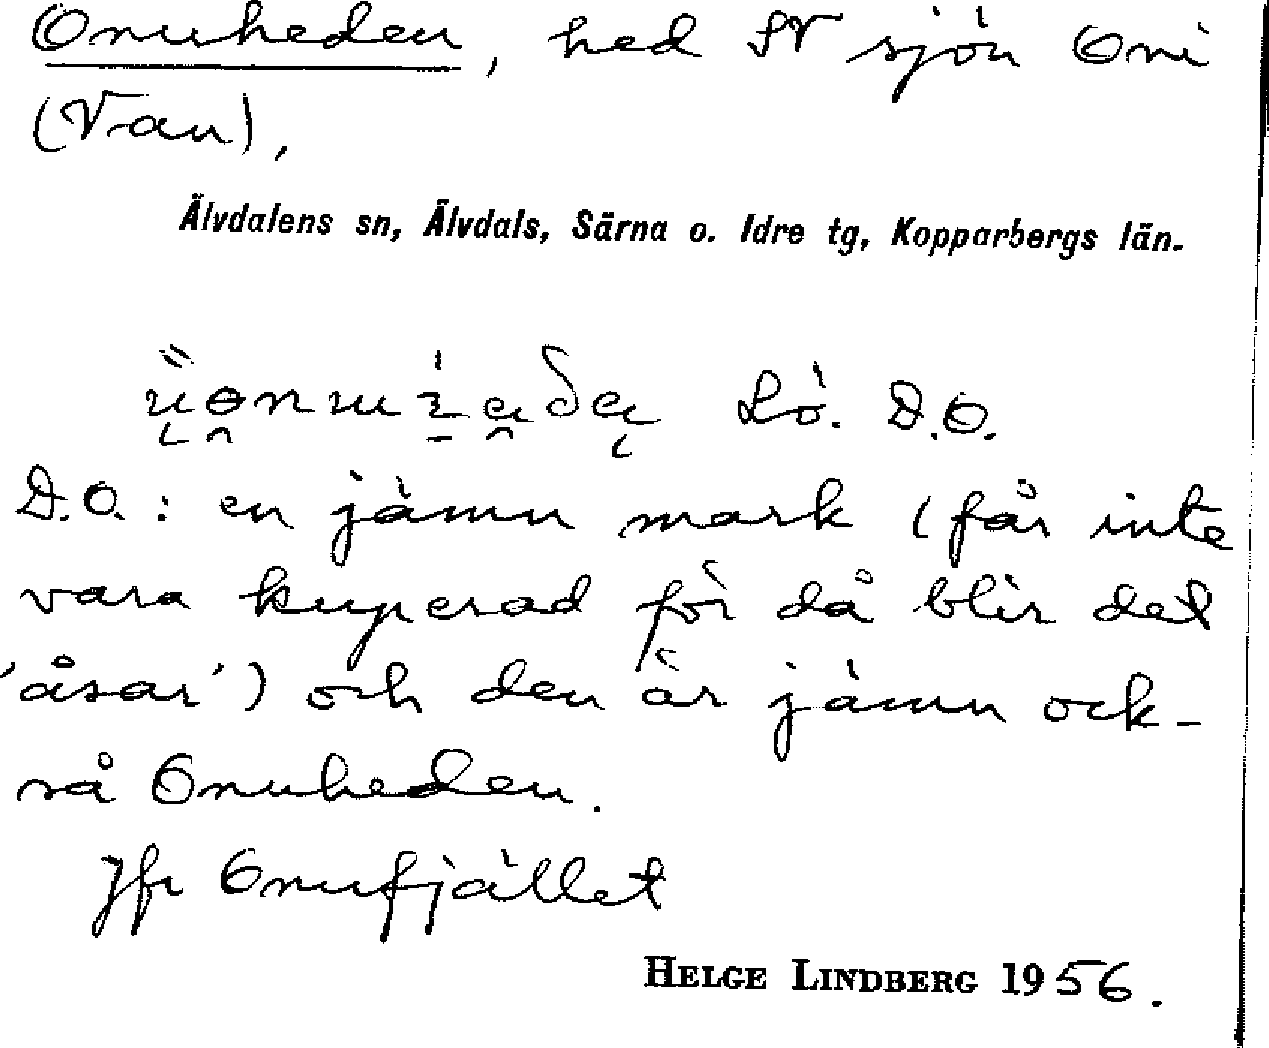 Onuheden, hed SV sjön Oni
(Van),
Älvdalens sn, Älvdals, Särna o. Idre tg, Kopparbergs län.
Lö. D.O.
D.O. : en jämn mark (får inte
vara kuperad för då blir det
'åsar') och den är jämn ock-
så Onuheden.
Jfr Onufjället
HELGE LINDBERG 1956.